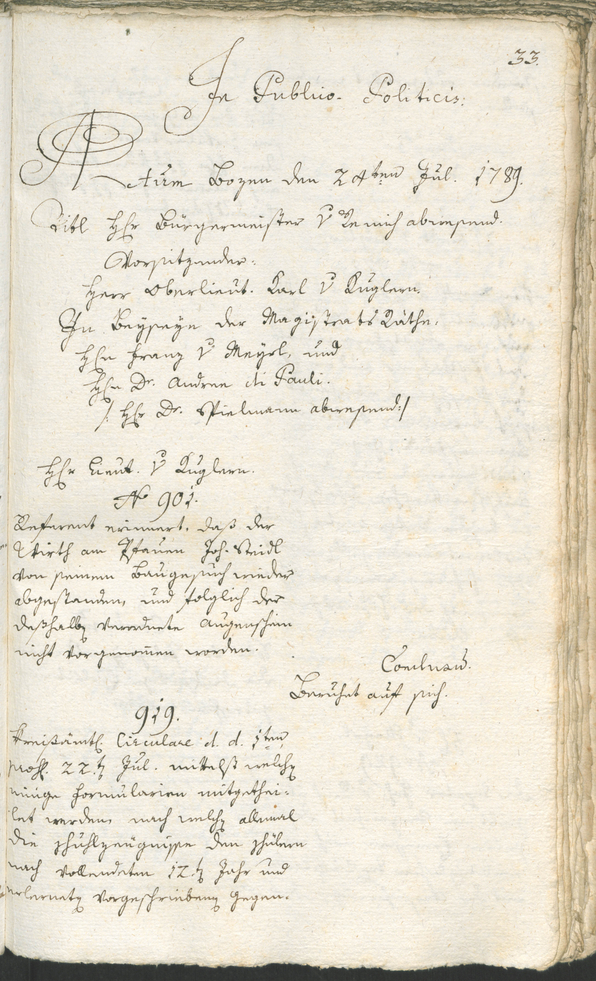 33.
In Publico-Politicis.
Actum Bozen den 24ten Jul. 1789.
Titl Hr Bürgermeister v Remich abwesend.
Vorsitzender:
Herr Oberlieut. Karl v Kuglern.
In Beyseyn der Magistrats Räthe,
Hrn Franz v Meyrl, und
Hrn Dr. Andree di Pauli.
/: Hr Dr. Spielmann abwesend :/
Hr Lieut. v Kuglern.
No 901.
Referent erinnert, daß der
Wirth am Pfauen Joh. Steidl
von seinem Baugesuch wieder
abgestanden, und folglich der
deßhalb verordnete Augenschein
nicht vorgenommen worden.
Conclusum.
Beruhet auf sich.
919.
Kreißämtl. Circulare d. d. 1ten
22. Jul. mittelst welch
einige Formularien mitgethei-
let werden, nach welch allemal
die Schulzeugnisse den Schülern
nach vollendeten 12. Jahr und
erlernet vorgeschrieben Gegen-